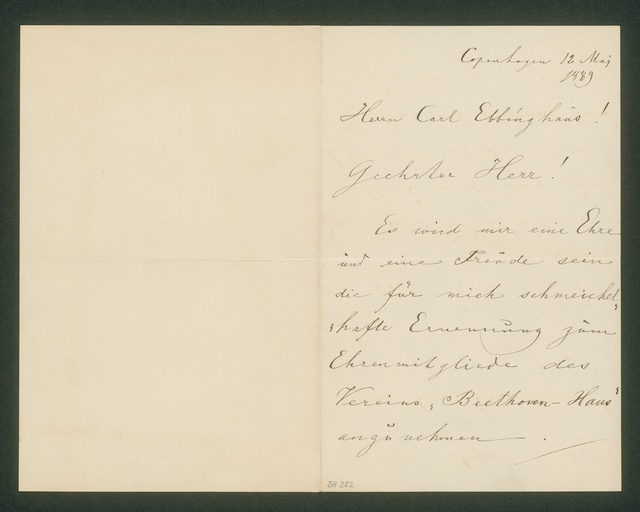 Copenhagen 12 Maj
1889
Herrn Carl Ebbinghaus!
Geehrter Herr!
Es wird mir eine Ehre
und eine Freude sein
die für mich schmeichel,,
,,hafte Ernennung zum
Ehrenmitgliede des
Vereins „Beethoven-Haus"
anzunehmen.
BH 282